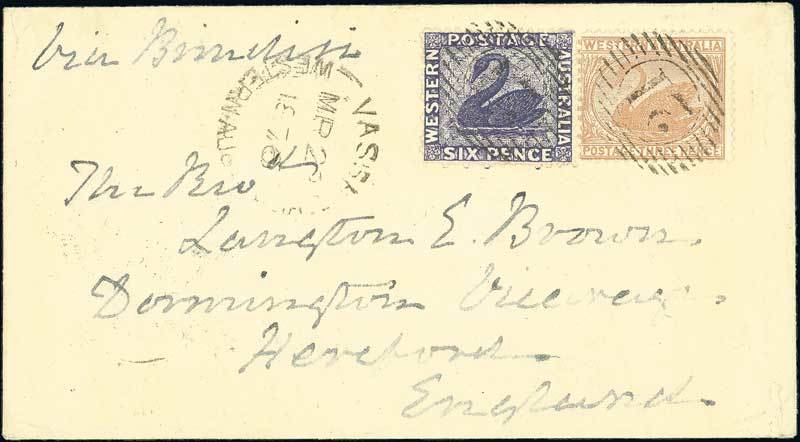 Via Brindisi
WESTERN AU
VASSE
MR 2
WESTERN
POSTAGE
AUSTRALIA
SIX PENCE
WESTERN AUSTRALIA
POSTAGE
PENCE
The Rev
Langton E. Brown.
Dormington Vicarage.
Hereford.
England.